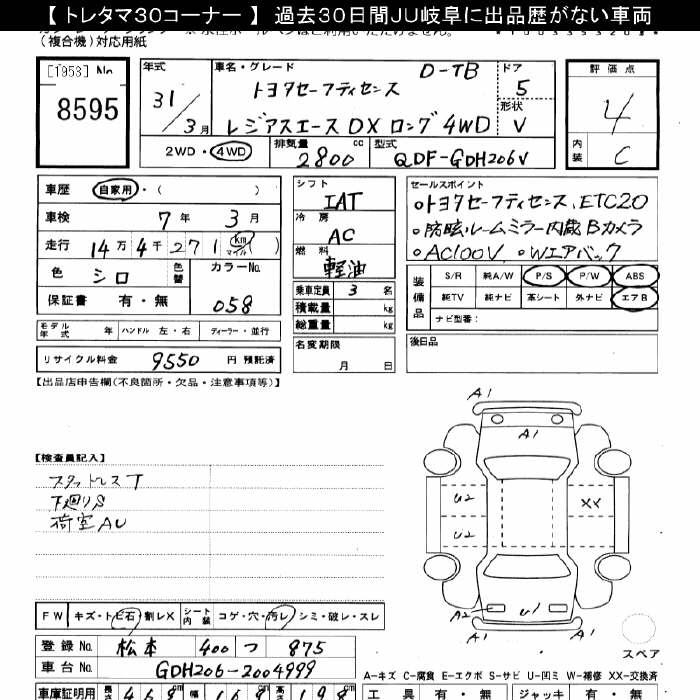 【 トレタマ30コーナー 】 過去30日間JU岐阜に出品歴がない車両
(複合機)対応用紙
[1953] No
8595
年式
31/3月
車名・グレード
D-TB
トヨタセーフティセンス
レジアスエース DX ロング 4WD
ドア
5
形状
V
評価点
4
内装
C
2WD・4WD
排気量
2800 cc
型式
QDF-GDH206V
車歴 自家用・( )
車検 7年 3月
走行 14万4千271 (km マイル)
色 シロ 色替
カラーNo.
058
保証書 有・無
モデル年式 年 ハンドル 左・右 ディーラー・並行
リサイクル料金 9550 円 預託済
シフト
IAT
冷房
AC
燃料
軽油
乗車定員 3 名
積載量 kg
総重量 kg
名変期限
月 日
セールスポイント
○トヨタセーフティセンス、ETC20
○防眩ルームミラー内蔵Bカメラ
○AC100V ○Wエアバック
装備品
S/R 純A/W P/S P/W ABS
純TV 純ナビ 革シート 外ナビ エアB
ナビ型番:
後日品
【出品店申告欄(不良箇所・欠品・注意事項等)】
【検査員記入】
スタットレスT
下廻りS
荷室AU
A1
A1
U2
U2
XX
A2
U1
A1
スペア
FW キズ・トビ石・割レX シート内装 コゲ・穴・汚レ・シミ・破レ・スレ
登録No. 松本 400 つ 875
車台No. GDH206-2004999
A-キズ C-腐食 E-エクボ S-サビ U-凹ミ W-補修 XX-交換済
車庫証明用 長さ 幅 高さ
工具 有・無 ジャッキ 有・無